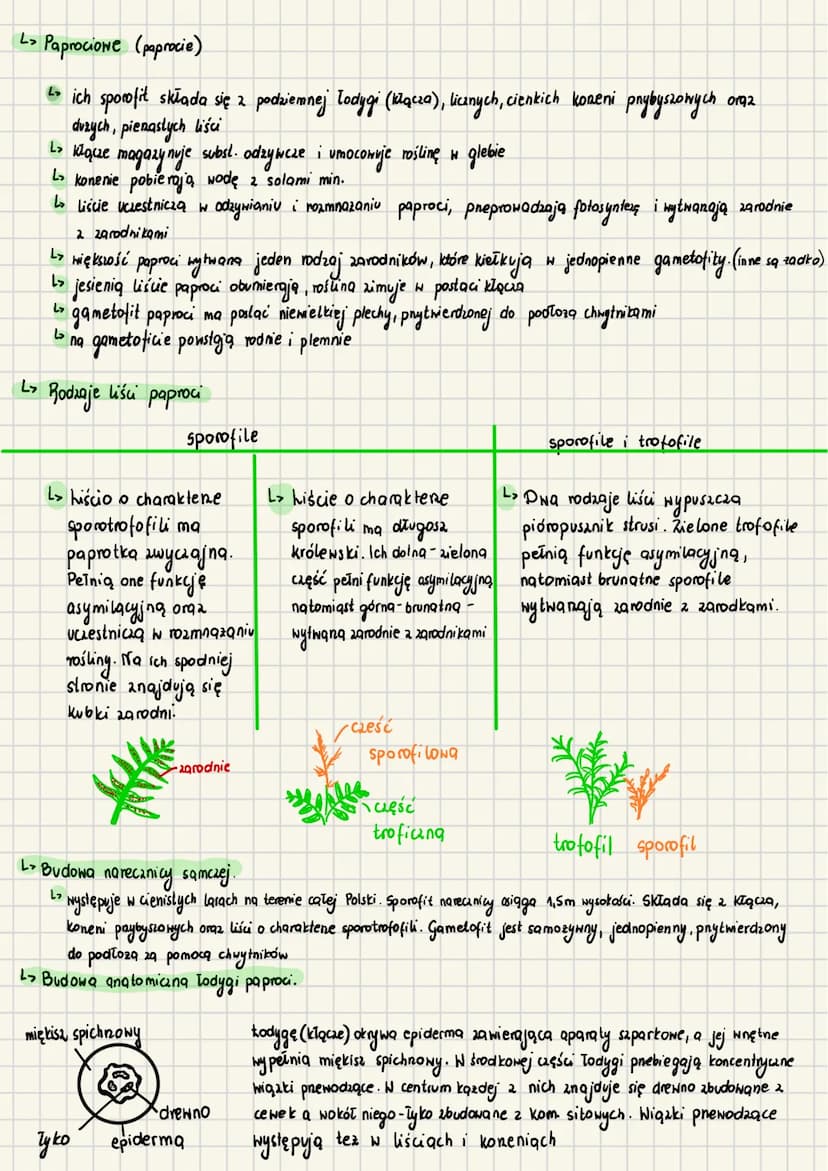 ↳ Paprociowe (paprocie)
↳ ich sporofit składa się z podziemnej łodygi (kłącza), licznych, cienkich korzeni przybyszowych oraz
dużych, pierzastych liści
↳ kłącze magazynuje subst. odżywcze i umocowuje roślinę w glebie
↳ korzenie pobierają wodę z solami min.
↳ liście uczestniczą w odżywianiu i rozmnażaniu paproci, przeprowadzają fotosyntezę i wytwarzają zarodnie
z zarodnikami
↳ większość paproci wytwarza jeden rodzaj zarodników, które kiełkują w jednopienne gametofity. (inne są rzadko)
↳ jesienią liście paproci obumierają, roślina zimuje w postaci kłącza
↳ gametofit paproci ma postać niewielkiej plechy, przytwierdzonej do podłoża chwytnikami
↳ na gametoficie powstają rodnie i plemnie
↳ Rodzaje liści paproci
sporofile
sporofile i trofofile
↳ Liścio o charakterze
sporotrofofili ma
paprotka zwyczajna.
Pełnią one funkcję
asymilacyjną oraz
uczestniczą w rozmnażaniu
rośliny. Na ich spodniej
stronie znajdują się
kubki zarodni.
↳ Liście o charakterze
sporofili ma długosz
królewski. Ich dolna - zielona
część pełni funkcję asymilacyjną
natomiast górna - brunatna -
wytwarza zarodnie z zarodnikami
↳ Dwa rodzaje liści wypuszcza
pióropusznik strusi. Zielone trofofile
pełnią funkcję asymilacyjną,
natomiast brunatne sporofile
wytwarzają zarodnie z zarodkami.
zarodnie
cześć
sporofilowa
część
troficzna
trofofil
sporofil
↳ Budowa narecznicy samczej.
↳ występuje w cienistych lasach na terenie całej Polski. Sporofit narecznicy osiąga 1,5m wysokości. Składa się z kłącza,
korzeni przybyszowych oraz liści o charakterze sporotrofofili. Gametofit jest samożywny, jednopienny, przytwierdzony
do podłoża za pomocą chwytników
↳ Budowa anatomiczna łodygi paproci.
miękisz spichrzowy
drewno
łyko
epiderma
Łodygę (kłącze) okrywa epiderma zawierająca aparaty szparkowe, a jej wnętrze
wypełnia miękisz spichrzowy. W środkowej części łodygi przebiegają koncentryczne
wiązki przewodzące. W centrum każdej z nich znajduje się drewno zbudowane z
cewek a wokół niego - łyko zbudowane z kom sitowych. Wiązki przewodzące
występują też w liściach i korzeniach